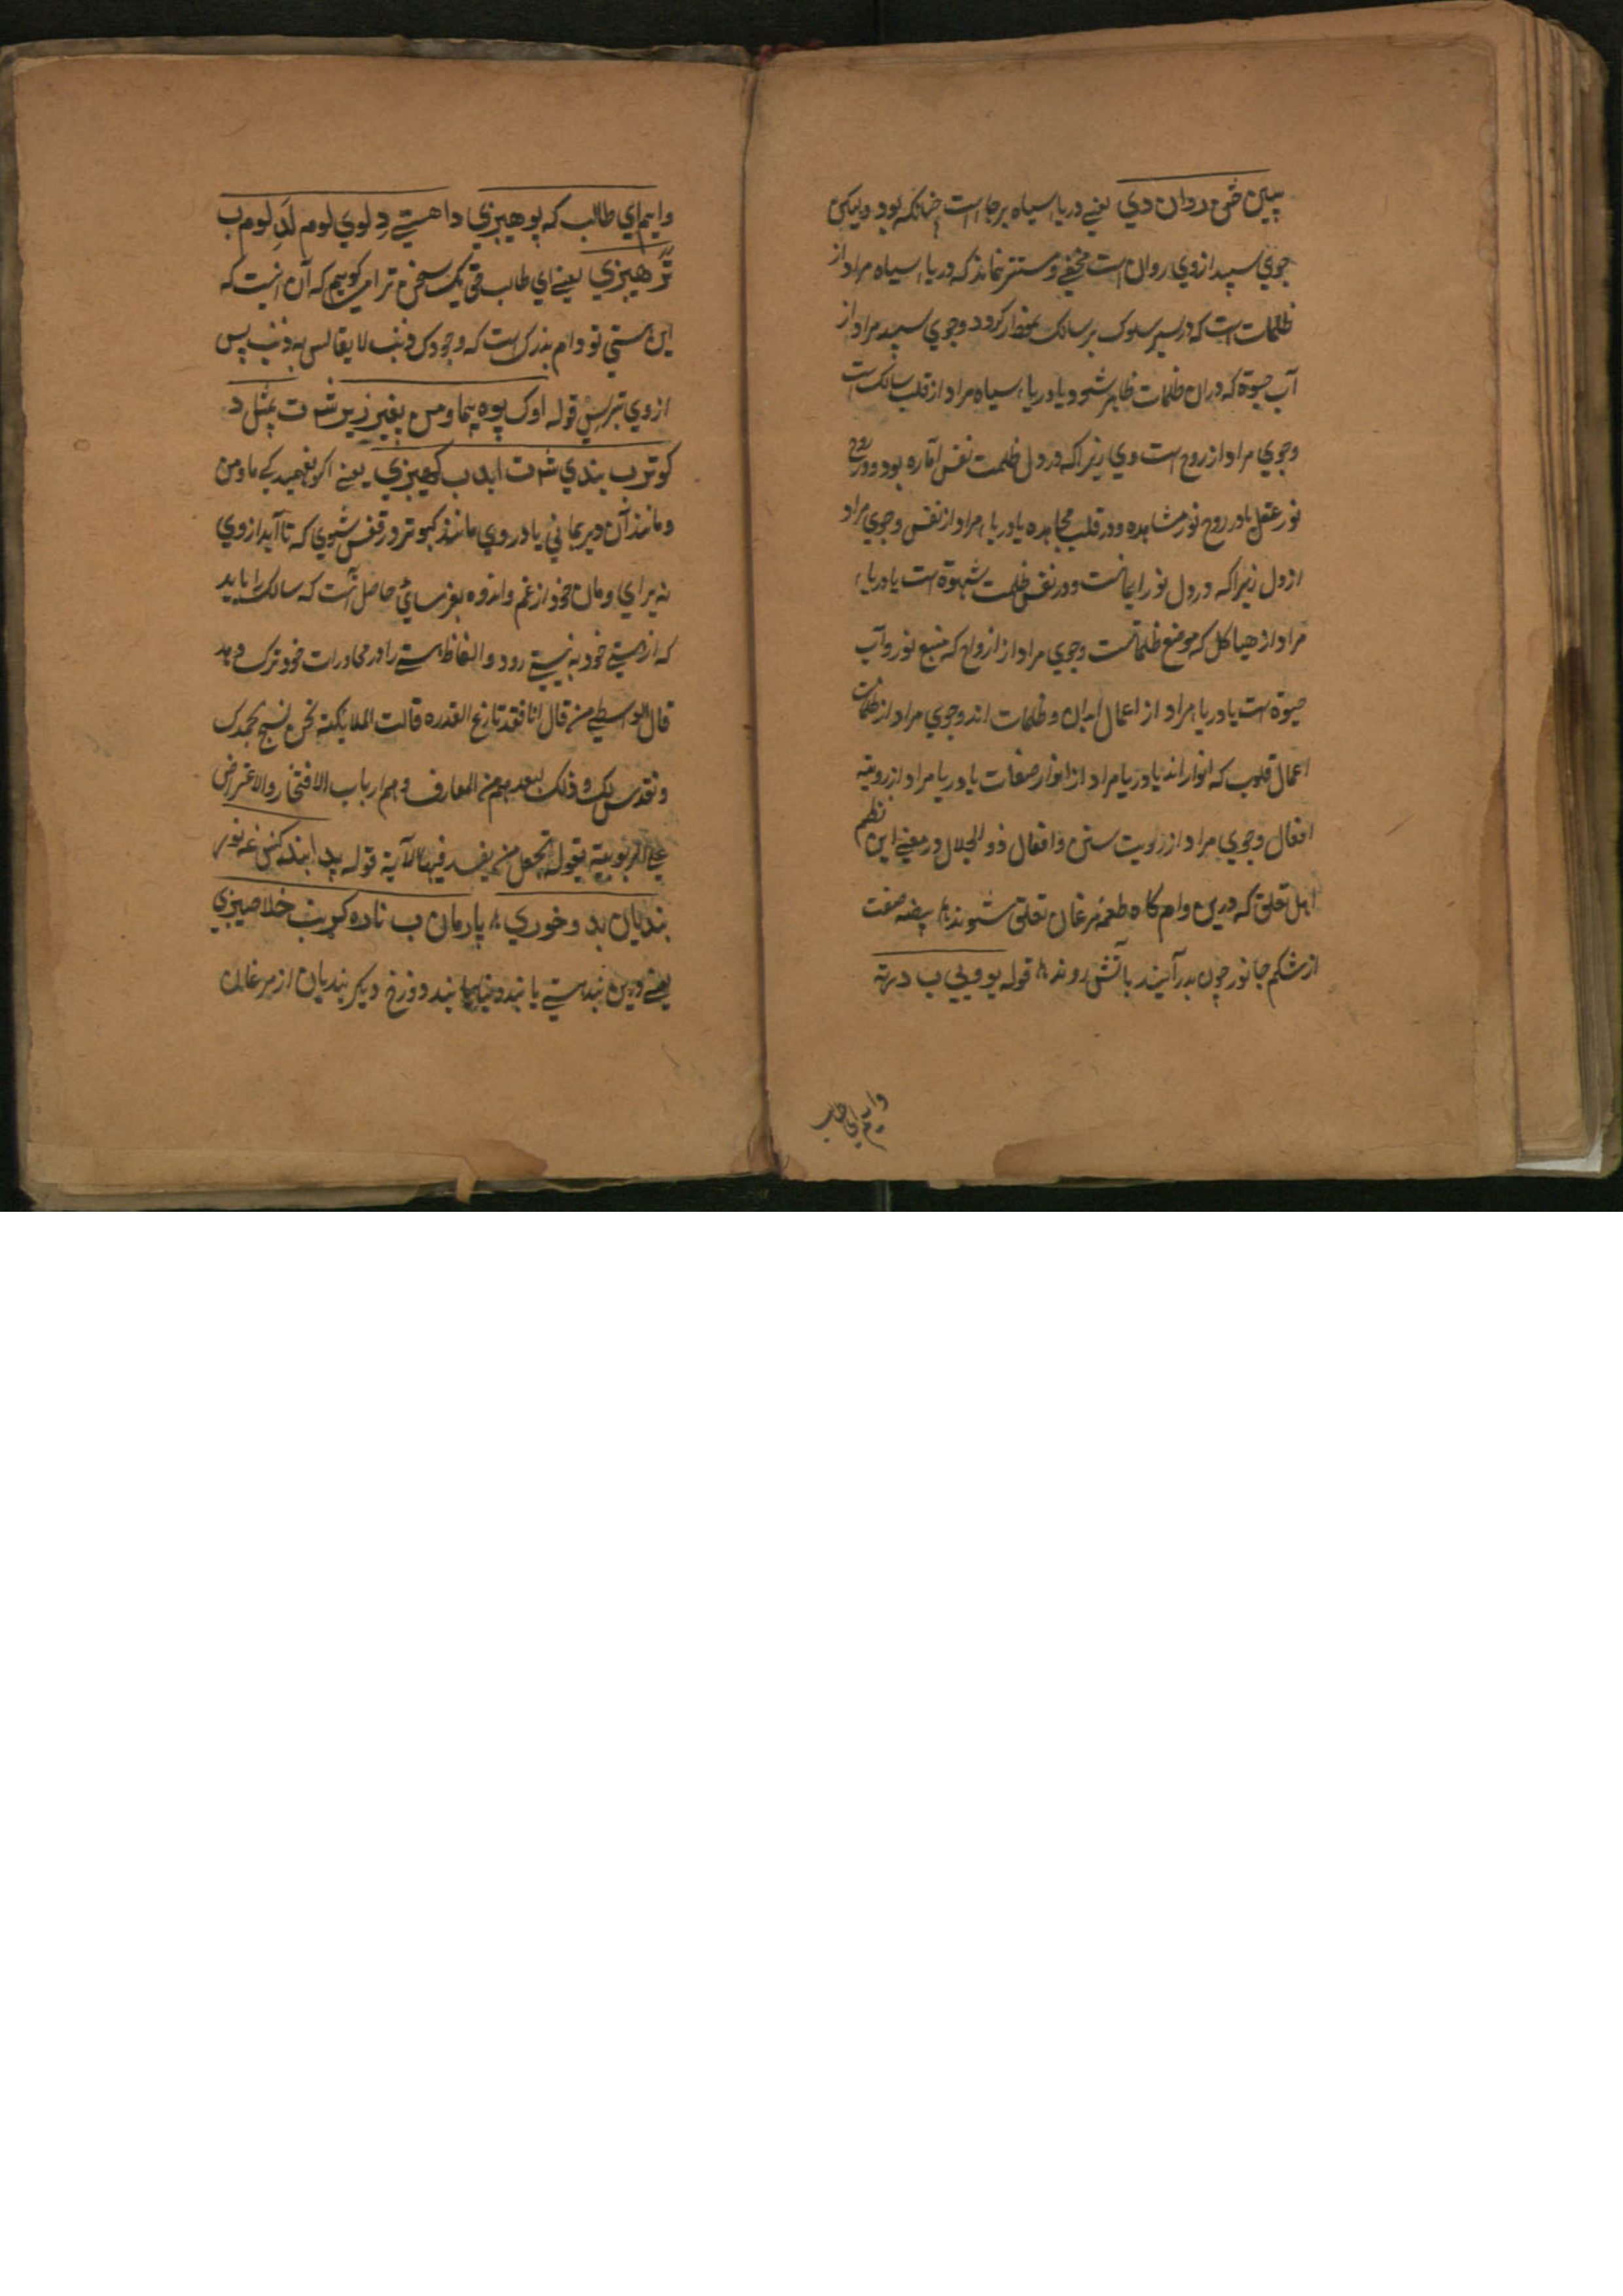 سپین ځنی روان دي یعنے دریا سیاه برجا است چنانکه بود ولیکن
جوي سپید ازوي روان است مخفے و مستتر نماند که دریاء سیاه مراد از
ظلمات است که در سیر سلوک بر سالک کردد وجوي سپید مراد از
آب حیوة که دران ظلمات ظاهر شود یا دریاء سیاه مراد از قلب سالک است
وجوي مراد از روح است وي زیراکه در دل ظلمت نفس اماره بود و در روح
نور عقل یا در روح نور مشاهده و در قلب مجاهده یا دریاء مراد از نفس وجوي مراد
از دل زیراکه در دل نور ایمانست و در نفس ظلمت شهوة است یا دریاء
مراد از هیاکل که موضع ظلماتست وجوي مراد از ارواح که منبع نور و آب
حیوة است یا دریا مراد از اعمال ابدان و ظلمات اند وجوي مراد از
اعمال قلوب که انوار اند یا دریا مراد از انوار صفات یا دریا مراد از رویته
افعال وجوي مراد از رویت سنن و افعال ذو الجلال در معنے این نظم
اهل تعلق که درین دام کاه طعمهٔ مرغان تعلق شوند بیضه صفت
از شکم جانور چون بدر آیند باتش روند قوله یو ویی ب درته
وایم اي طالب
وایم اي طالب که پوهیږي دا هستے دِ لوي لوم لَدِ لوم ب
تَر هیږي یعنے اي طالب یک سخن ترا میکویم که آن اینست که
این هستي تو دام بزرک است که وجودک ذنب لا یقاس به ذنب پس
ازوي بترس قوله اوک پوه پما ومن بغیر زیر شه ت بمثل د
کوترب بندي شه ت ابد ب کهیږي یعنے اکر نفهمید کے ما و من
و مانند آن دیر بماني یا در وي مانند کبوتر در قفس شوي که تا آید ازوي
نه برای و مان خود از غم و اندوه حاصل آنست که سالک را باید
که از هستے خود به نیستے رود و الفاظ هستے را در محاورات خود ترک دهد
قال الواسطے من قال انا فقد نازع القدره قالت الملائکة نحن نسبح بحمدک
و نقدس لک و ذلک لبعدهم من المعارف و هم ارباب الافتخار و الاعتراض
علے الربوبیة بقوله اتجعل من یفسد فیها الآیة قوله پدا بند کښ غه نور
بندیان بد و خوري پارمان ب ناده کړیند خلاصیږي
یعنے درین بند هستے یا بند دنیا یا بند دوزخ دیکر بندیان از مرغان